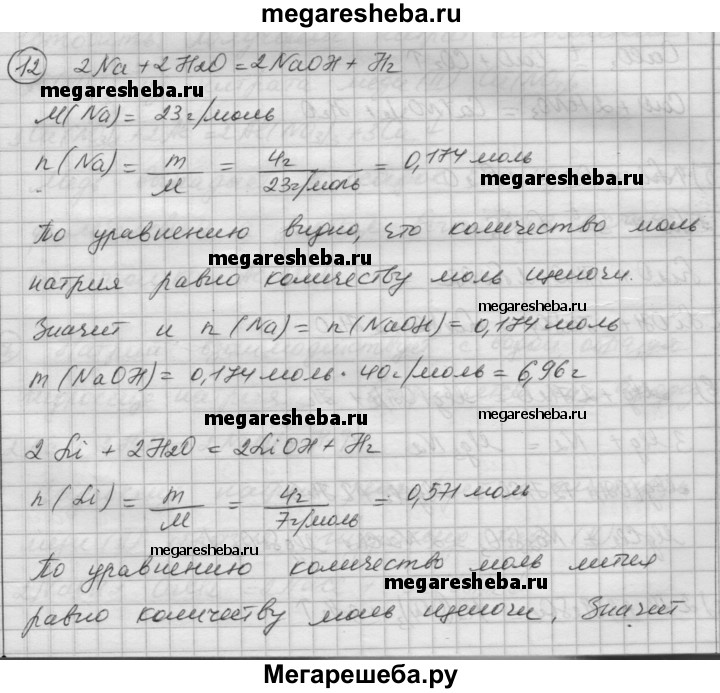 megaresheba.ru
12 2Na + 2H2O = 2NaOH + H2
megaresheba.ru
M(Na) = 23г/моль
n(Na) = m/M = 4г/23г/моль = 0,174 моль
megaresheba.ru
По уравнению видно, что количество моль
megaresheba.ru
натрия равно количеству моль щелочи.
megaresheba.ru
Значит и n(Na) = n(NaOH) = 0,174 моль
megaresheba.ru
m(NaOH) = 0,174 моль · 40г/моль = 6,96г
megaresheba.ru
megaresheba.ru
2Li + 2H2O = 2LiOH + H2
n(Li) = m/M = 4г/7г/моль = 0,571 моль
megaresheba.ru
По уравнению количество моль лития
megaresheba.ru
равно количеству моль щелочи. Значит
Мегарешеба.ру